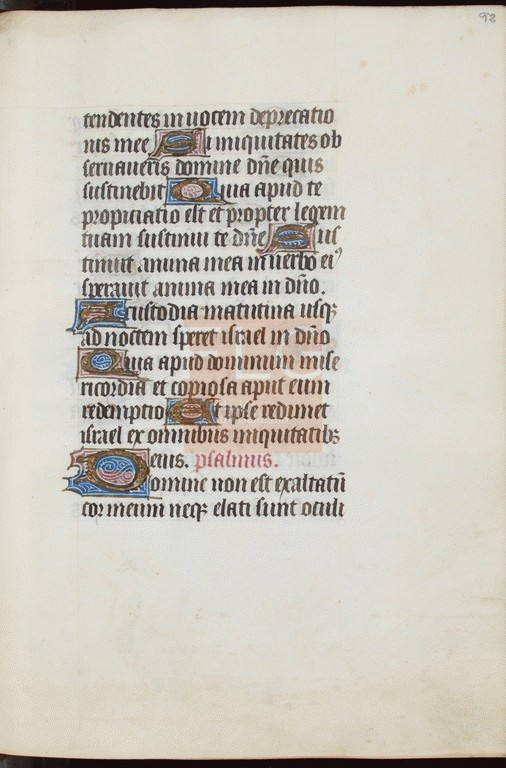 92
tendentes in uocem deprecatio
nis mee Si iniquitates ob
seruaueris domine dñe quis
sustinebit Quia apud te
propiciatio est et propter legem
tuam sustinui te dñe Sus
tinuit anima mea in uerbo ei⁹
sperauit anima mea in dño.
A custodia matutina usqꝫ
ad noctem speret israel in dño
Quia apud dominum mise
ricordia et copiosa aput eum
redemptio Et ipse redimet
israel ex omnibus iniquitatibꝫ
eius. psalmus.
Domine non est exaltatũ
cor meum neqꝫ elati sunt oculi